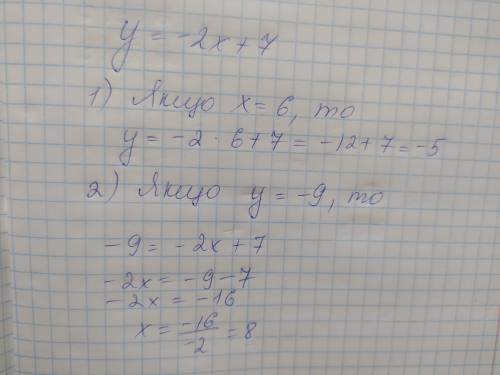 y = -2x + 7
1) Якщо x = 6, то
y = -2 · 6 + 7 = -12 + 7 = -5
2) Якщо y = -9, то
-9 = -2x + 7
-2x = -9 - 7
-2x = -16
x = -16/-2 = 8